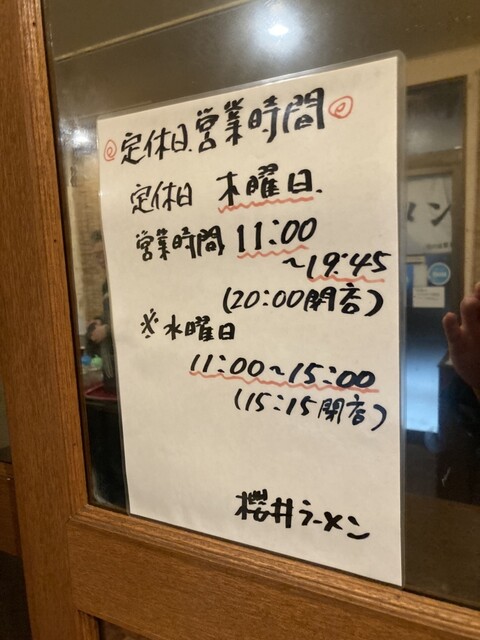 定休日.営業時間
定休日 木曜日.
営業時間 11:00
~19:45
(20:00閉店)
※水曜日
11:00~15:00
(15:15閉店)
櫻井ラーメン
メン